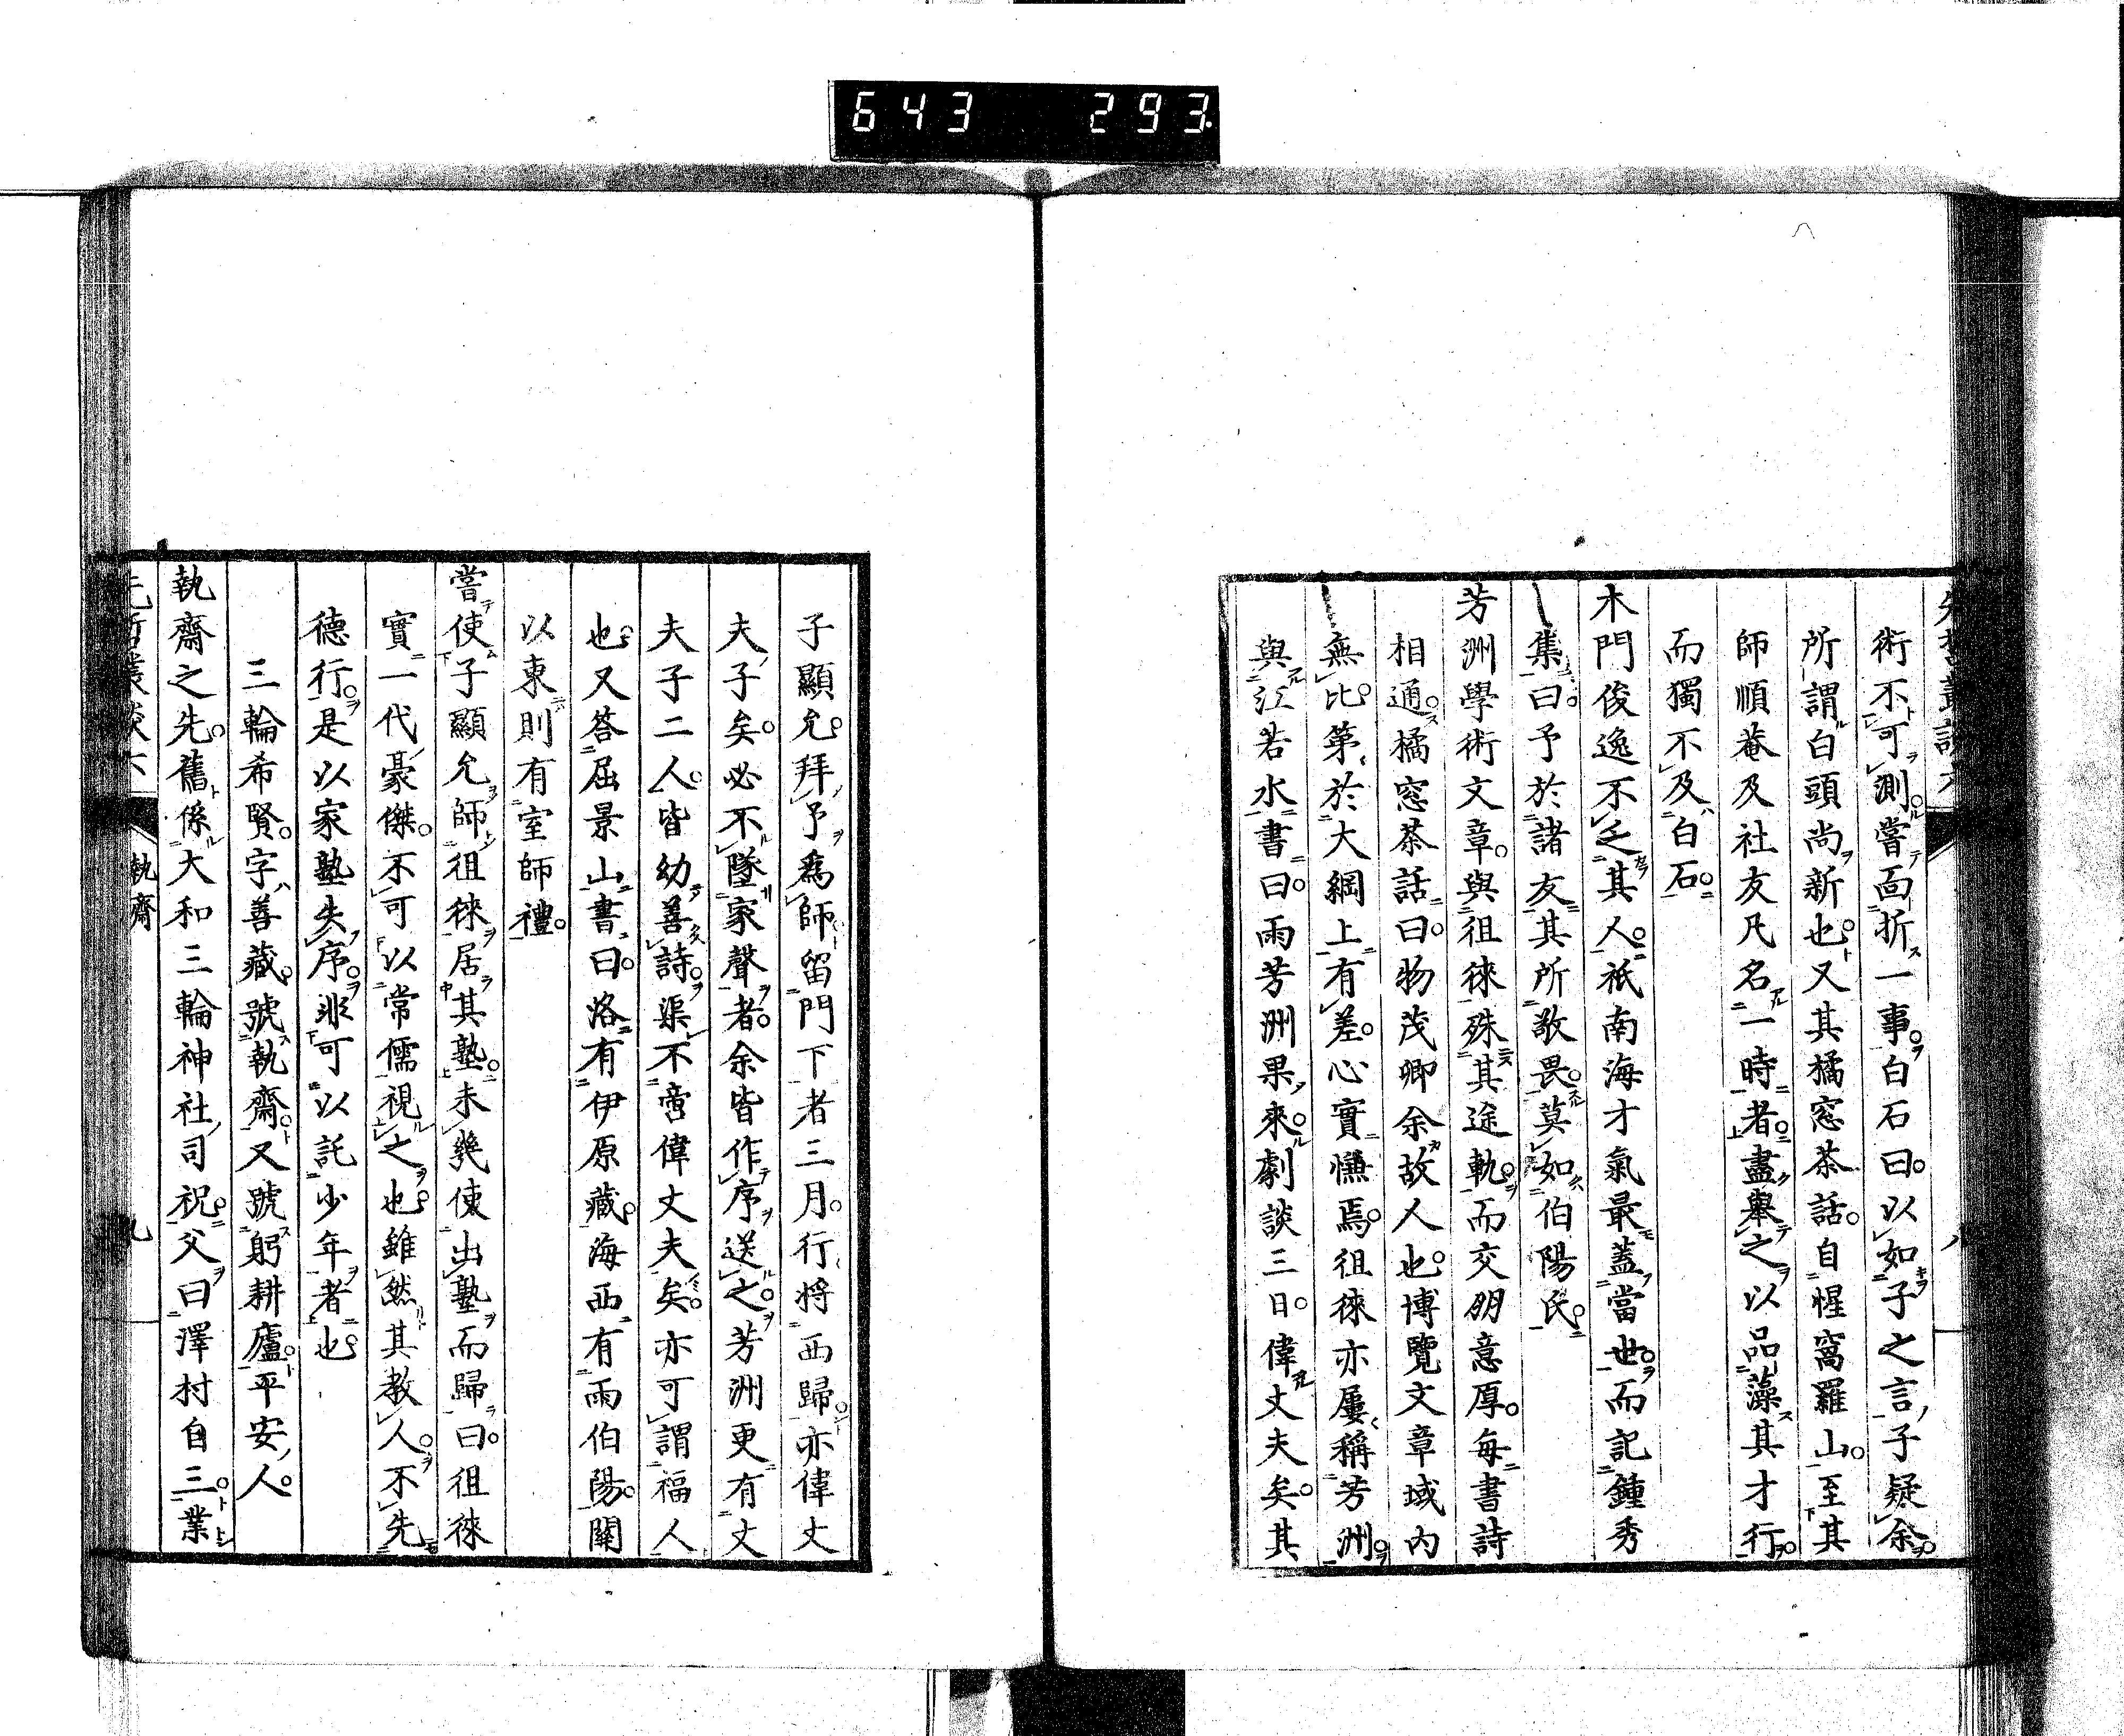 643 293
術不可測。嘗面折一事。白石曰。以如子之言子疑余。
所謂白頭尚新也。又其橘窓茶話。自惺窩羅山。至其
師順菴及社友凡名一時者。盡舉之以品藻其才行。
而獨不及白石。
木門俊逸不乏其人。祇南海才氣最蓋當世。而記鍾秀
集曰。予於諸友其所敬畏。莫如伯陽氏。
芳洲學術文章。與徂徠殊其途軌。而交朋意厚。每書詩
相通。橘窓茶話曰。物茂卿余故人也。博覽文章域內
無比。第於大綱上有差。心實慊焉。徂徠亦屢稱芳洲。
與江若水書曰。雨芳洲果來。劇談三日。偉丈夫矣。其
子顯允。拜予爲師留門下者三月。行將西歸。亦偉丈
夫子矣。必不墜家聲者。余皆作序送之。芳洲更有丈
夫子二人。皆幼善詩。渠不啻偉丈夫矣。亦可謂福人
也。又答屈景山書曰。洛有伊原藏。海西有雨伯陽。關
以東則有室師禮。
嘗使子顯允師徂徠居其塾。未幾使出塾而歸曰。徂徠
實一代豪傑。不可以常儒視之也。雖然其教人。不先
德行。是以家塾失序。非可以託少年者也。
三輪希賢。字善藏。號執齋。又號躬耕廬。平安人。
執齋之先。舊係大和三輪神社司祝。父曰澤村自三。業
執齋
九